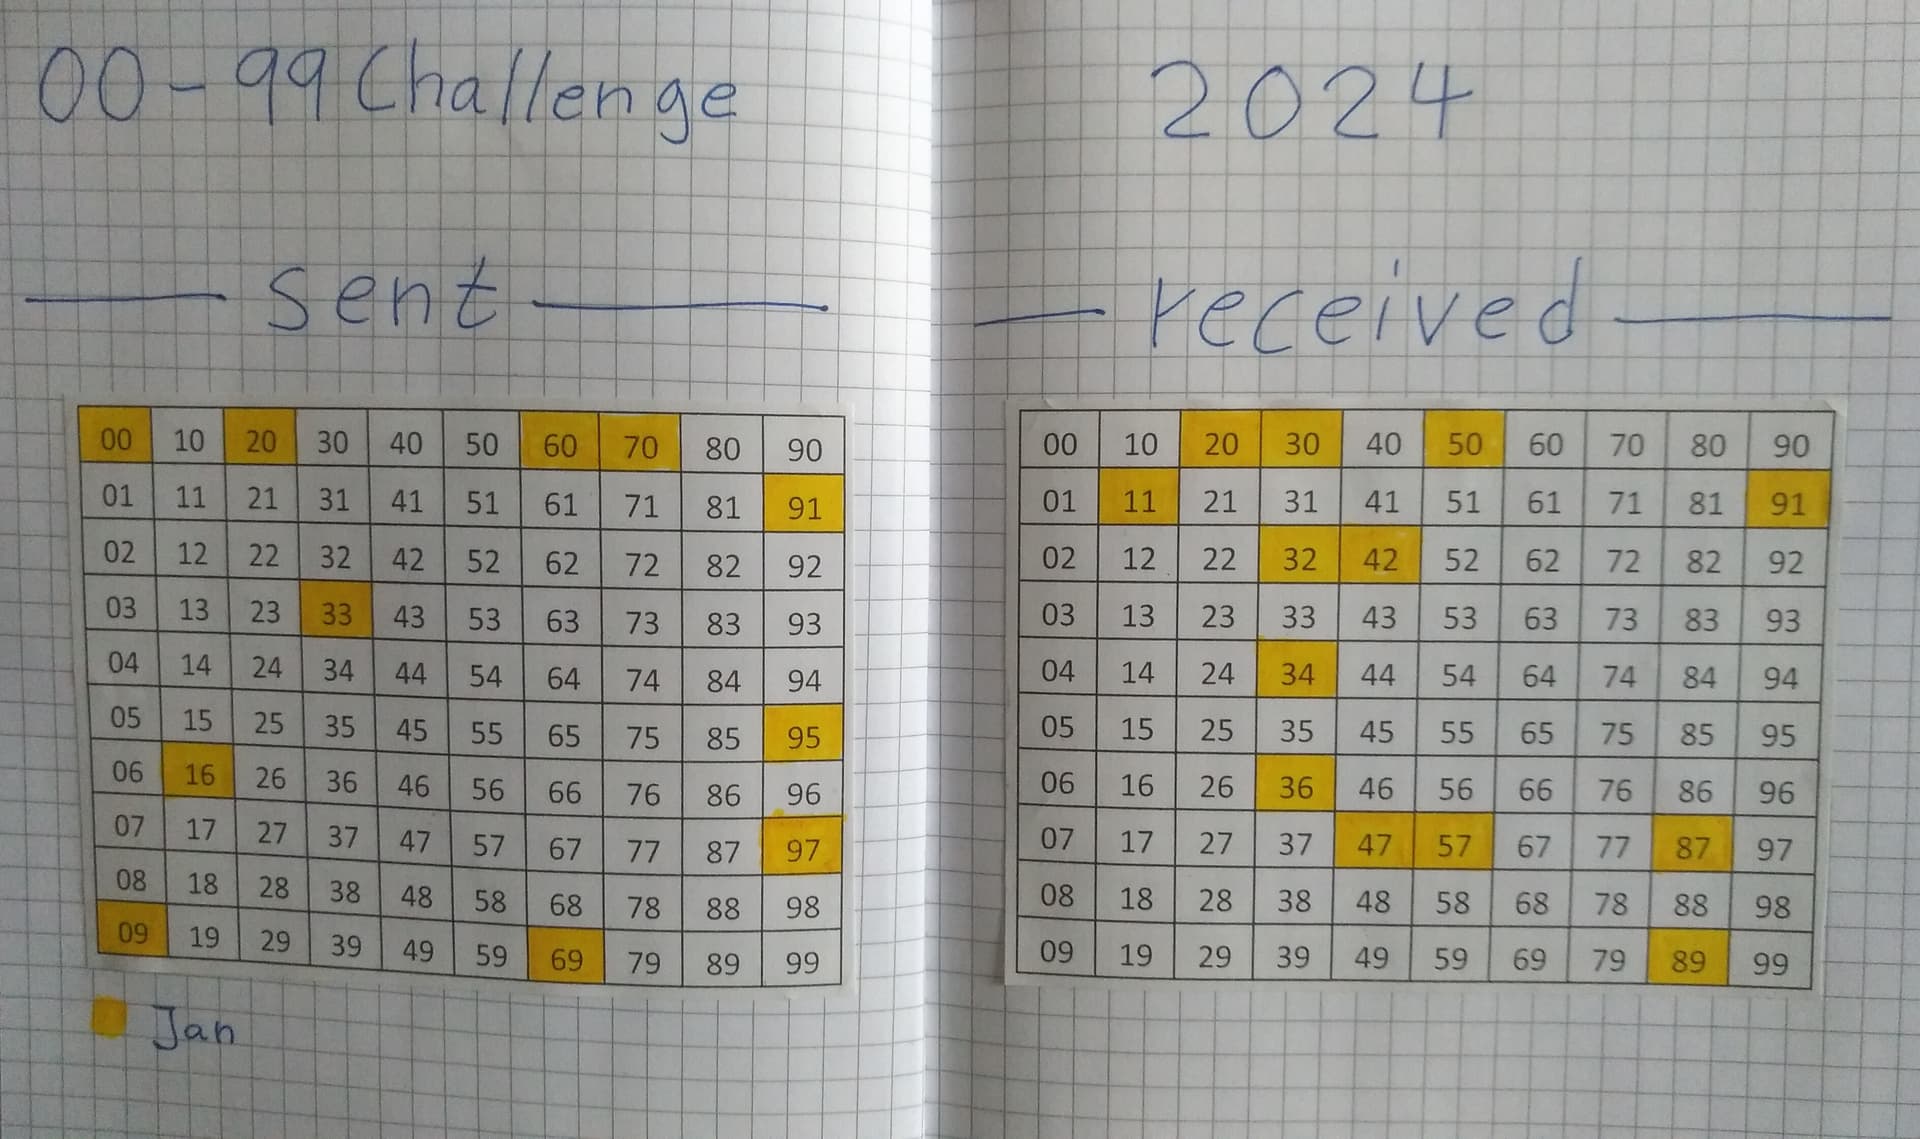 00-99 Challenge
sent
00 10 20 30 40 50 60 70 80 90
01 11 21 31 41 51 61 71 81 91
02 12 22 32 42 52 62 72 82 92
03 13 23 33 43 53 63 73 83 93
04 14 24 34 44 54 64 74 84 94
05 15 25 35 45 55 65 75 85 95
06 16 26 36 46 56 66 76 86 96
07 17 27 37 47 57 67 77 87 97
08 18 28 38 48 58 68 78 88 98
09 19 29 39 49 59 69 79 89 99
Jan
2024
received
00 10 20 30 40 50 60 70 80 90
01 11 21 31 41 51 61 71 81 91
02 12 22 32 42 52 62 72 82 92
03 13 23 33 43 53 63 73 83 93
04 14 24 34 44 54 64 74 84 94
05 15 25 35 45 55 65 75 85 95
06 16 26 36 46 56 66 76 86 96
07 17 27 37 47 57 67 77 87 97
08 18 28 38 48 58 68 78 88 98
09 19 29 39 49 59 69 79 89 99